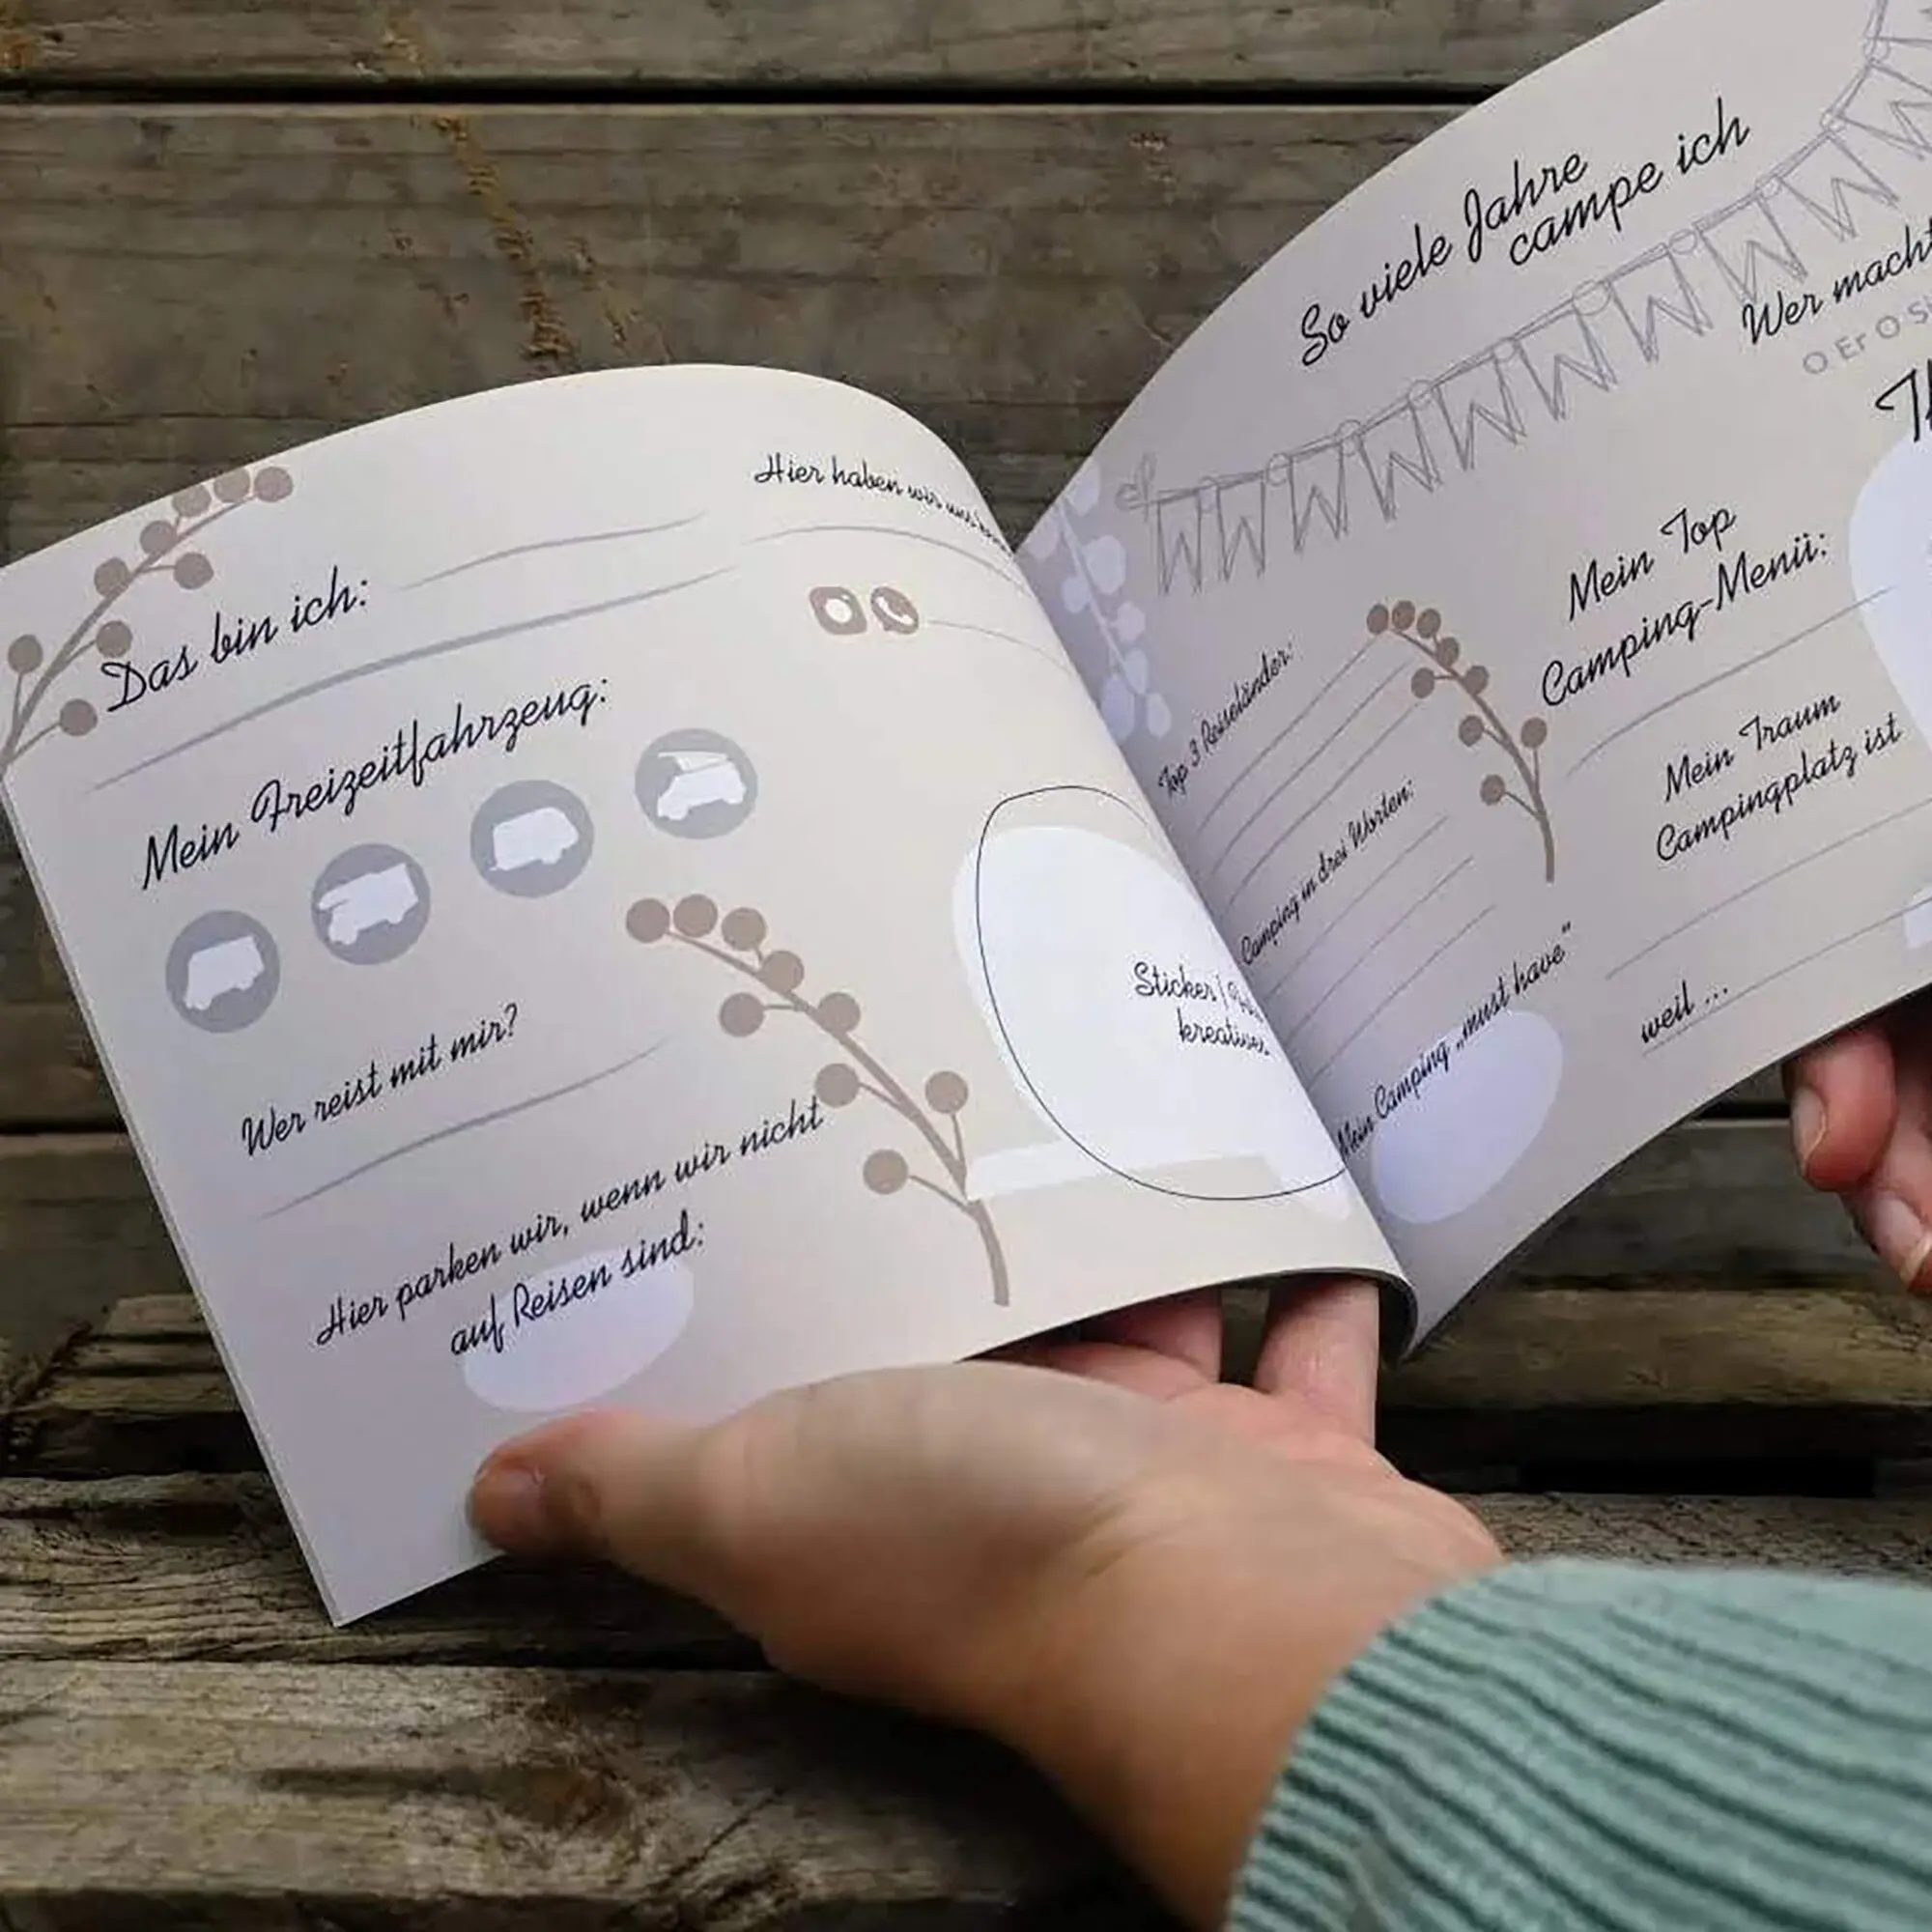 Das bin ich:
Hier haben wir uns
Mein Freizeitfahrzeug:
Wer reist mit mir?
Hier parken wir, wenn wir nicht
auf Reisen sind:
Sticker /
kreatives
So viele Jahre
campe ich
Wer macht
O Er O
Top 3 Reiseländer:
Camping in drei Worten:
Mein Camping „must have"
Mein Top
Camping-Menü:
Mein Traum
Campingplatz ist
weil ...